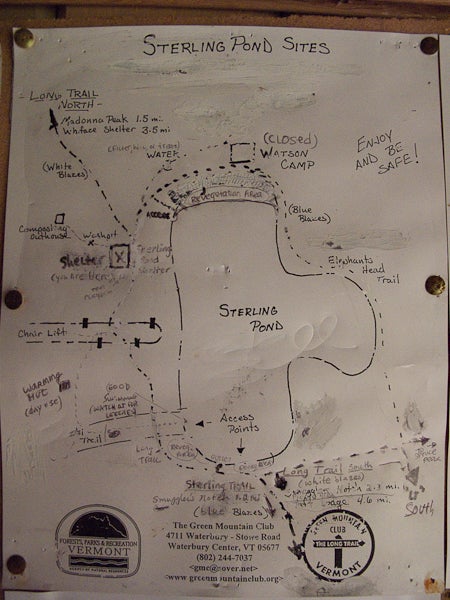 STERLING POND SITES
LONG TRAIL
NORTH-
Madonna Peak 1.5 mi.
Whiface Shelter 3.5 mi.
(White
Blazes)
WATER
(CLOSED)
WATSON
CAMP
ENJOY
AND BE
SAFE!
Revegetation Area
(Blue
Blazes)
Composting
Outhouse
Washpit
Shelter
X
(You Are Here)
Sterling
Pond
Shelter
Elephants
Head
Trail
STERLING
POND
Chair Lift
WARMING
HUT
(day use)
GOOD
SWIMMING
(WATCH OUT FOR
LEECHES)
Ski Trail
Access
Points
Long
Trail
OUTLET
Sterling TRAIL
Smugglers Notch
(blue Blazes)
Long Trail South
(white blazes)
Notch 2.3 mi.
4.6 mi.
South
FORESTS, PARKS & RECREATION
VERMONT
AGENCY OF NATURAL RESOURCES
The Green Mountain Club
4711 Waterbury - Stowe Road
Waterbury Center, VT 05677
(802) 244-7037
<gmc@sover.net>
<www.greenmountainclub.org>
GREEN MOUNTAIN
CLUB
THE LONG TRAIL
VERMONT